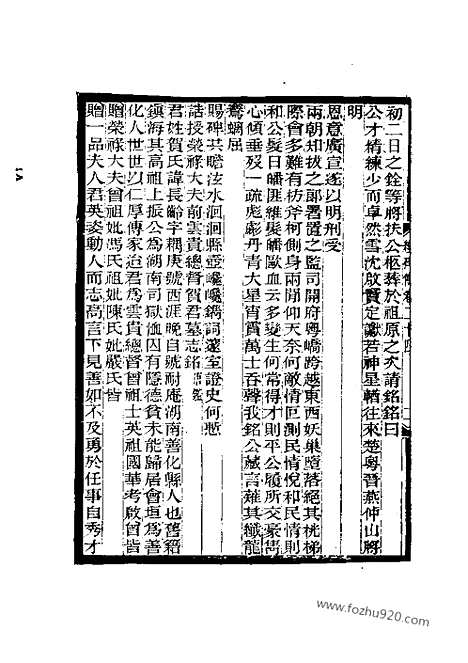 初二日之銓等將扶公柩葬於祖原之次請銘銘曰
公才精練少而卓然雪沈啟寶定讞若神星軺往來楚粵晉燕仲山將
明
恩意廣宣遂以明刑受
兩朝知拔之郎署置之監司開府粵嶠跨越東西妖巢墮落絕其梯
際會多難有枋斧柯側身兩間仰天奈何敵情叵測民情悅和民情則
和公鬢日皤匪維鬢皤歐血云多變生何常得才則平公鄉所交豪雋
心傾垂歿一疏彪彪丹青大星宵霣萬士吞聲我銘公藏言蕤其幟龍
鸞蠖屈
賜碑共瞻泫水洄洄縣壺巉巉鐫詞邃室證史何慙
誥授榮祿大夫前雲貴總督賀君墓志銘
君姓賀氏諱長齡字耦庚號西涯晚自號耐庵湖南善化縣人也舊籍
鎮海其高祖上振公為湖南司獄恤囚有隱德貧未能歸居會垣為善
化人世世以仁厚傳家迨君為雲貴總督曾祖士英祖國華考啟曾皆
贈榮祿大夫曾祖妣馮氏祖妣陳氏妣嚴氏皆
贈一品夫人君英姿動人而志高言下見善如不及勇於任事自秀才
www.fozhu920.com